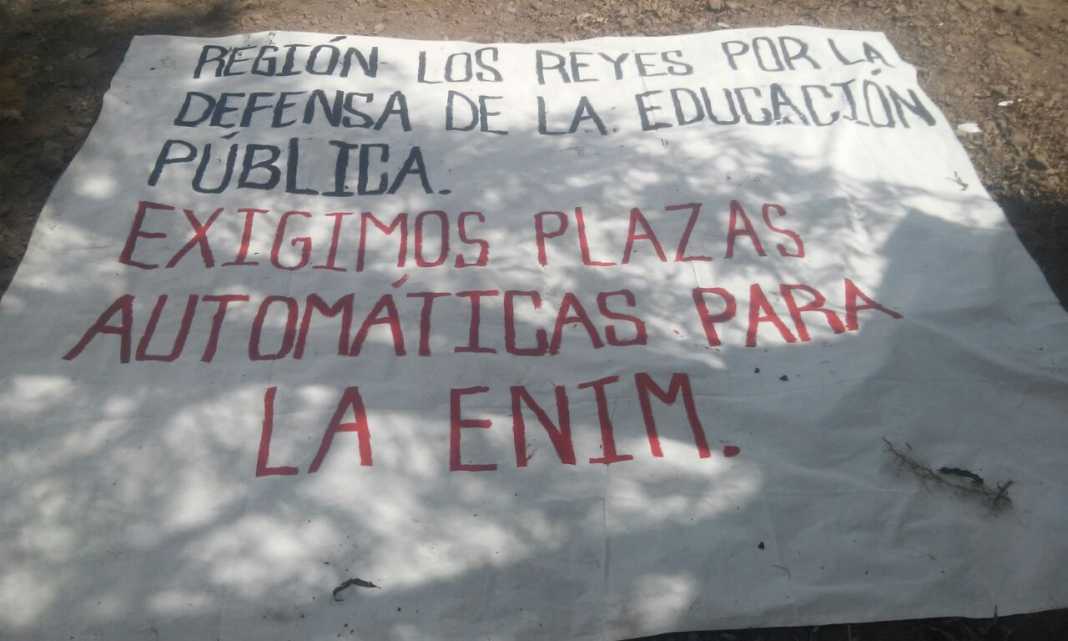 REGIÓN LOS REYES POR LA
DEFENSA DE LA EDUCACIÓN
PÚBLICA.
EXIGIMOS PLAZAS
AUTOMÁTICAS PARA
LA ENIM.